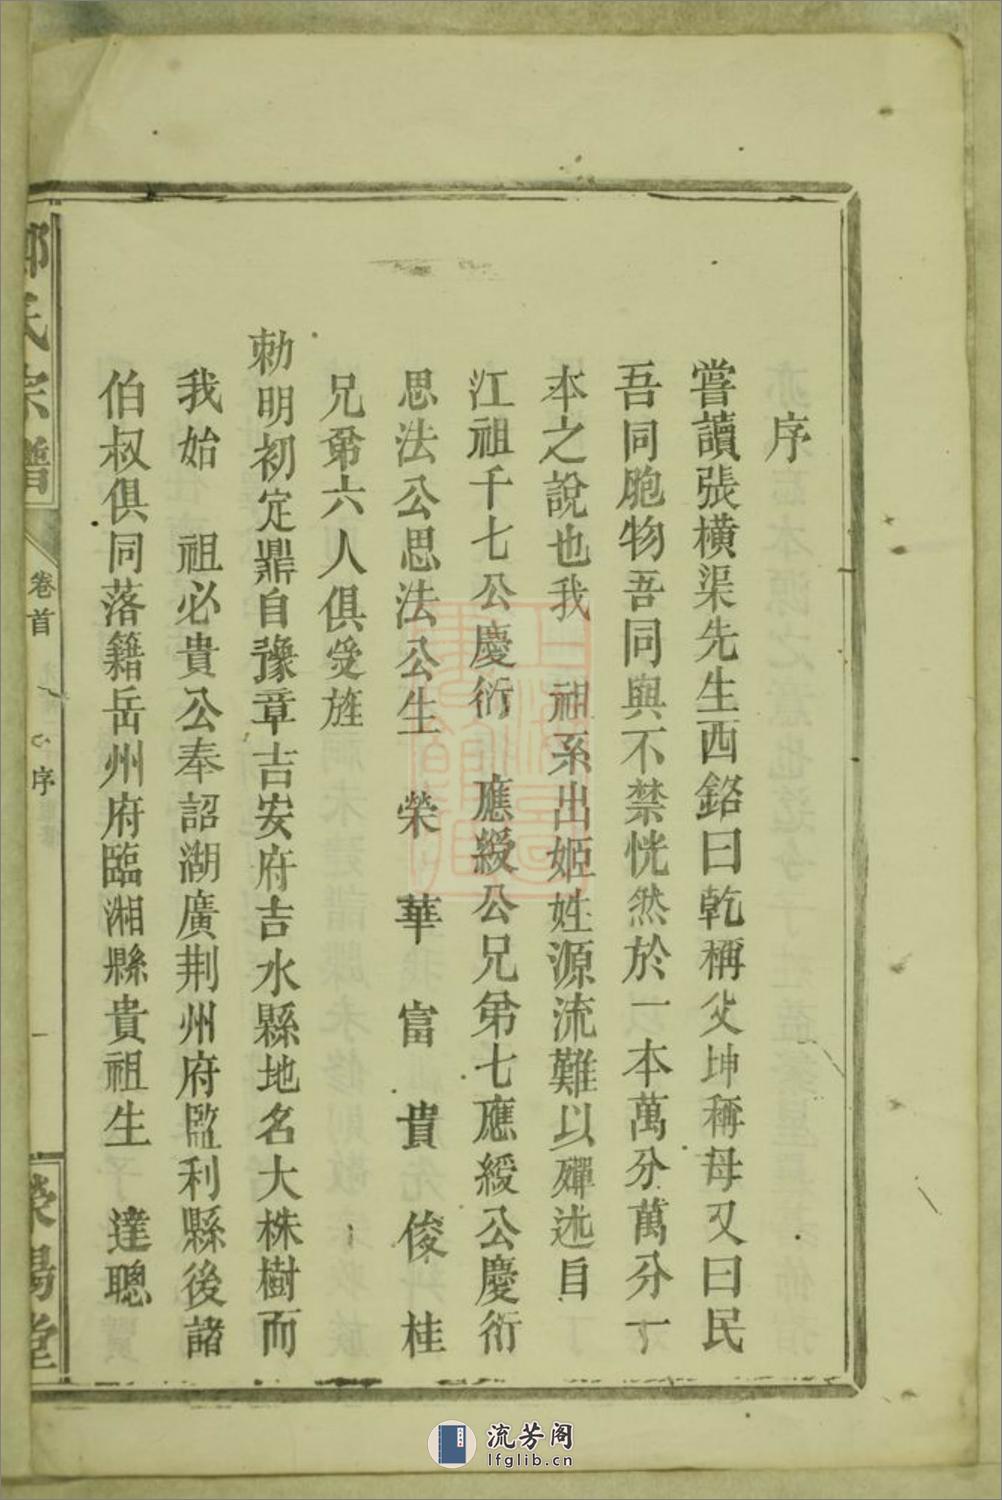 序
嘗讀張橫渠先生西銘曰乾稱父坤稱母又曰民
吾同胞物吾同與不禁恍然於一本萬分萬分一
本之說也我 祖系出姬姓源流難以殫述自
江祖千七公慶衍 應緩公兄弟七應緩公慶衍
思法公思法公生 榮 華 富 貴 俊 桂
兄弟六人俱受旌
勅明初定鼎自豫章吉安府吉水縣地名大株樹而
我始 祖必貴公奉詔湖廣荆州府監利縣後諸
伯叔俱同落籍岳州府臨湘縣貴祖生 達聰
氏宗譜
卷首
序
一
陽堂
流芳阁
lfglib.cn